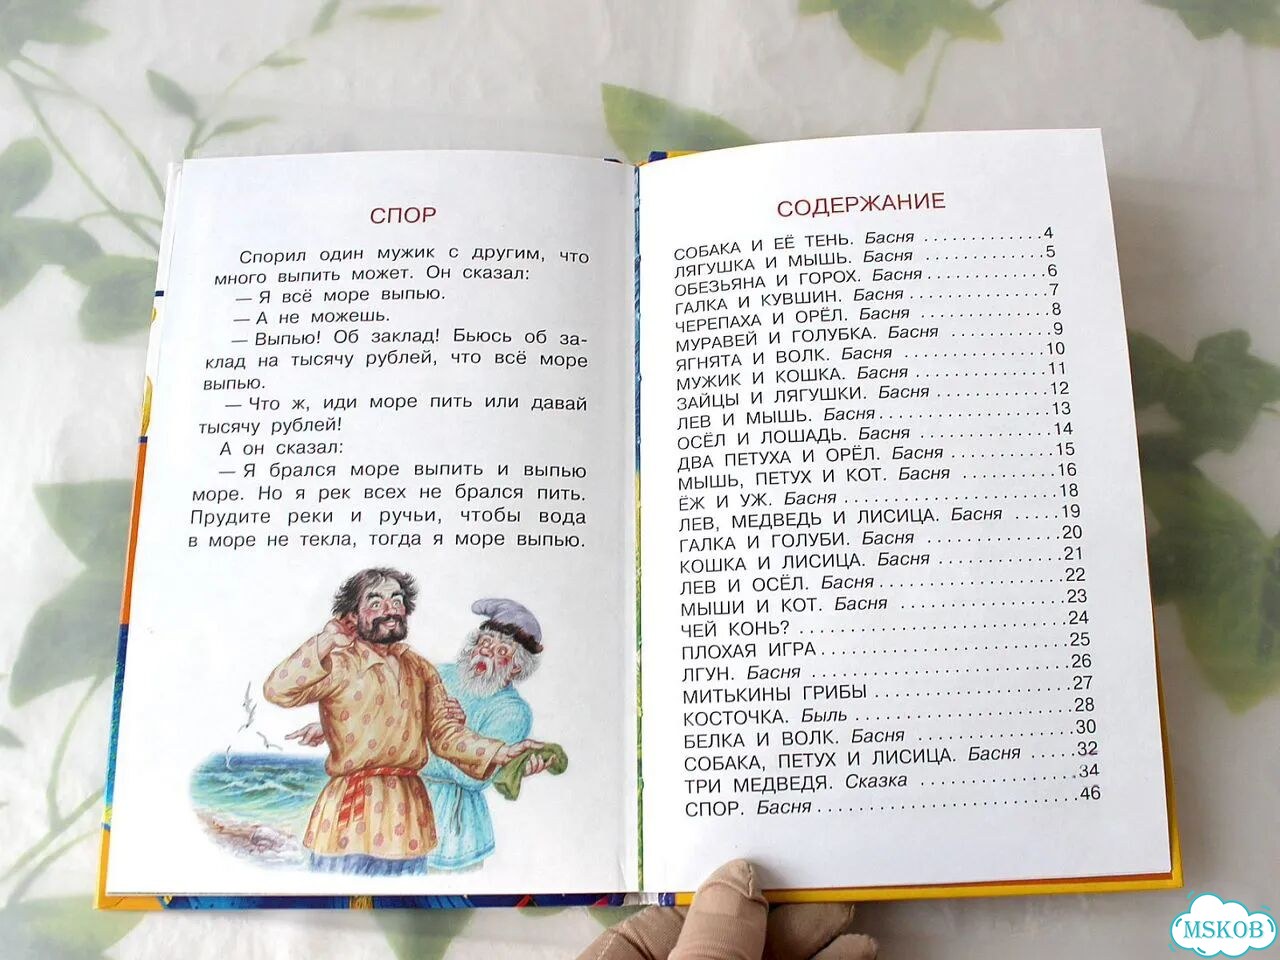 СПОР
Спорил один мужик с другим, что
много выпить может. Он сказал:
— Я всё море выпью.
— А не можешь.
— Выпью! Об заклад! Бьюсь об за-
клад на тысячу рублей, что всё море
выпью.
— Что ж, иди море пить или давай
тысячу рублей!
А он сказал:
— Я брался море выпить и выпью
море. Но я рек всех не брался пить.
Прудите реки и ручьи, чтобы вода
в море не текла, тогда я море выпью.
СОДЕРЖАНИЕ
СОБАКА И ЕЁ ТЕНЬ. Басня . . . . . . . . . . . . .4
ЛЯГУШКА И МЫШЬ. Басня . . . . . . . . . . . . .5
ОБЕЗЬЯНА И ГОРОХ. Басня . . . . . . . . . . . . .6
ГАЛКА И КУВШИН. Басня . . . . . . . . . . . . . . .7
ЧЕРЕПАХА И ОРЁЛ. Басня . . . . . . . . . . . . . .8
МУРАВЕЙ И ГОЛУБКА. Басня . . . . . . . . . . .9
ЯГНЯТА И ВОЛК. Басня . . . . . . . . . . . . . . .10
МУЖИК И КОШКА. Басня . . . . . . . . . . . . . .11
ЗАЙЦЫ И ЛЯГУШКИ. Басня . . . . . . . . . . . .12
ЛЕВ И МЫШЬ. Басня . . . . . . . . . . . . . . . . . .13
ОСЁЛ И ЛОШАДЬ. Басня . . . . . . . . . . . . . .14
ДВА ПЕТУХА И ОРЁЛ. Басня . . . . . . . . . . .15
МЫШЬ, ПЕТУХ И КОТ. Басня . . . . . . . . . . .16
ЁЖ И УЖ. Басня . . . . . . . . . . . . . . . . . . . . . .18
ЛЕВ, МЕДВЕДЬ И ЛИСИЦА. Басня . . . . .19
ГАЛКА И ГОЛУБИ. Басня . . . . . . . . . . . . . .20
КОШКА И ЛИСИЦА. Басня . . . . . . . . . . . . .21
ЛЕВ И ОСЁЛ. Басня . . . . . . . . . . . . . . . . . . .22
МЫШИ И КОТ. Басня . . . . . . . . . . . . . . . . .23
ЧЕЙ КОНЬ? . . . . . . . . . . . . . . . . . . . . . . . . . .24
ПЛОХАЯ ИГРА . . . . . . . . . . . . . . . . . . . . . . . .25
ЛГУН. Басня . . . . . . . . . . . . . . . . . . . . . . . . .26
МИТЬКИНЫ ГРИБЫ . . . . . . . . . . . . . . . . . . .27
КОСТОЧКА. Быль . . . . . . . . . . . . . . . . . . . . .28
БЕЛКА И ВОЛК. Басня . . . . . . . . . . . . . . . .30
СОБАКА, ПЕТУХ И ЛИСИЦА. Басня . . . . .32
ТРИ МЕДВЕДЯ. Сказка . . . . . . . . . . . . . . . .34
СПОР. Басня . . . . . . . . . . . . . . . . . . . . . . . . .46
MSKOB